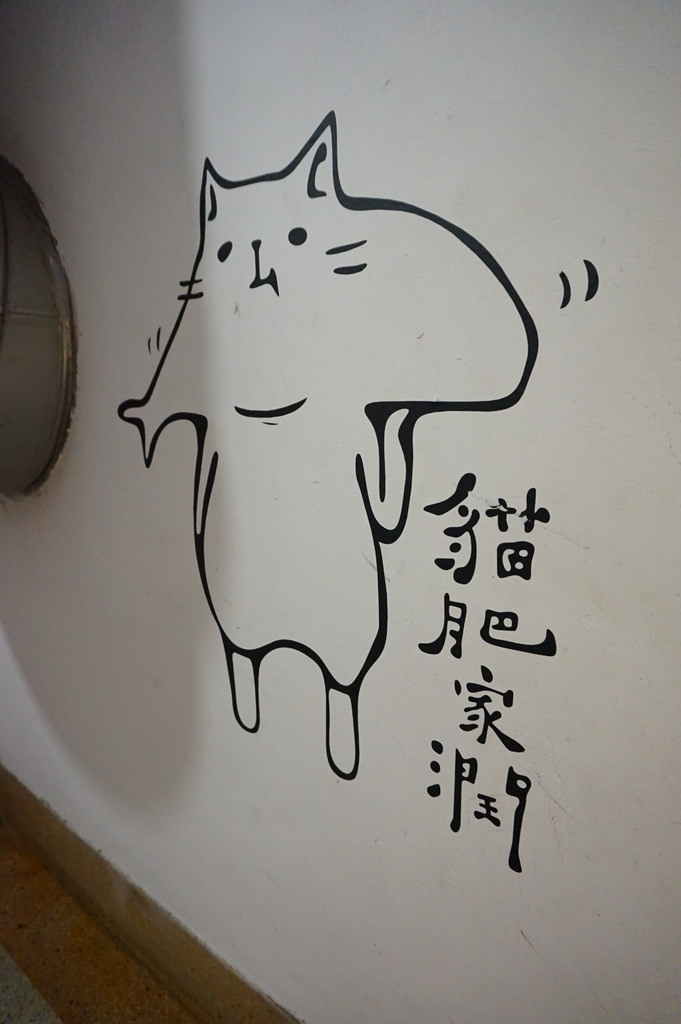 貓肥家潤